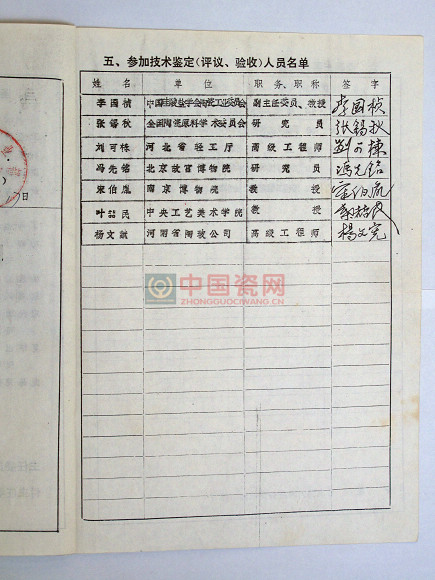 五、参加技术鉴定(评议、验收)人员名单
姓 名 单 位 职务、职称 签 字
李国桢 副主任委员、教授 李国桢
张锡秋 研究员 张锡秋
刘可栋 河北省轻工厅 高级工程师 刘可栋
冯先铭 北京故宫博物院 研究员 冯先铭
宋伯胤 南京博物院 教授 宋伯胤
叶喆民 中央工艺美术学院 教授 叶喆民
杨文献 河南省陶瓷公司 高级工程师 杨文宪
中国瓷网
ZHONGGUOCIWANG.COM